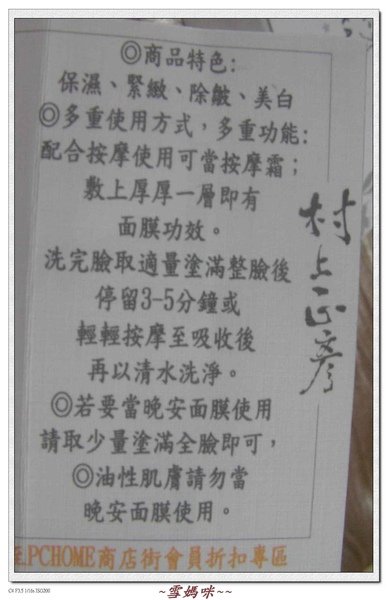 ◎商品特色:
保濕、緊緻、除皺、美白
◎多重使用方式，多重功能:
配合按摩使用可當按摩霜；
敷上厚厚一層即有
面膜功效。
洗完臉取適量塗滿整臉後
停留3-5分鐘或
輕輕按摩至吸收後
再以清水洗淨。
◎若要當晚安面膜使用
請取少量塗滿全臉即可，
◎油性肌膚請勿當
晚安面膜使用。
村上正彥
PCHOME商店街會員折扣專區
~雪媽咪~~